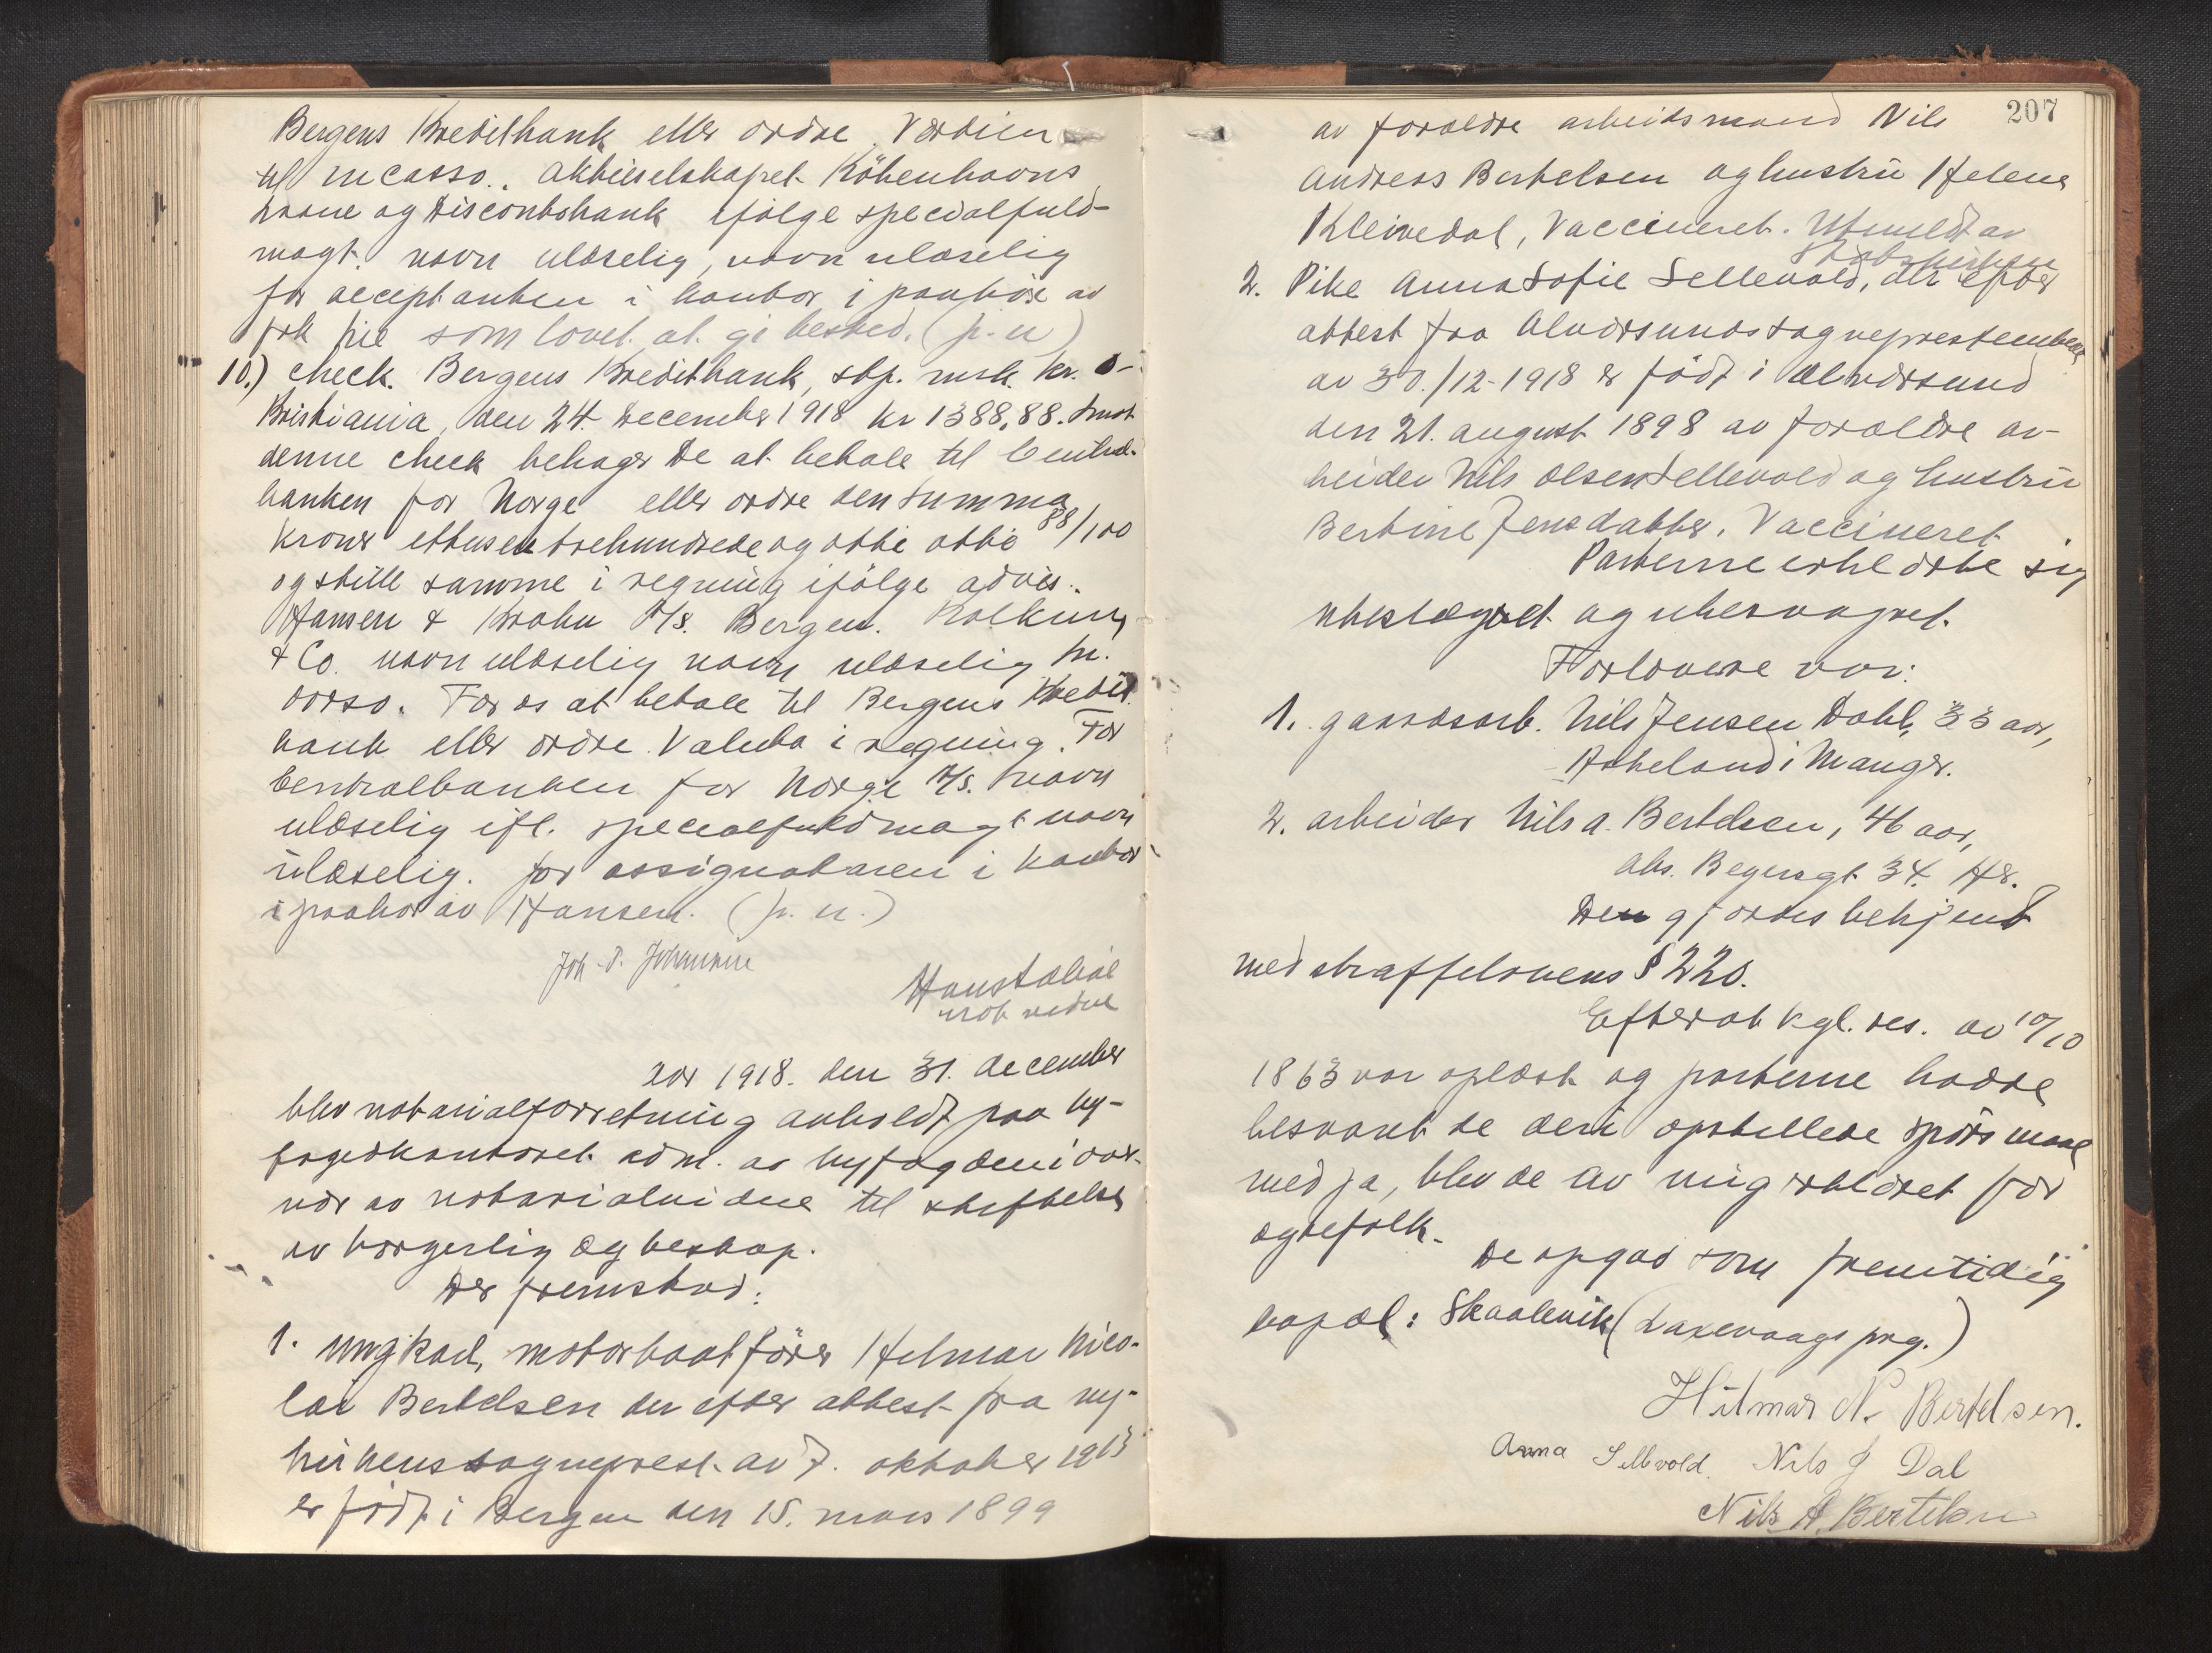 Bergens Kreditbank eller ordre. Værdien
til incasso. Aktieselskapet Köbenhavns
Laane og Discontobank ifölge specialfuld-
magt. navn ulæselig, navn ulæselig
for acceptanten i kontor i paahör av
frk som lovet at gi besked. (p.n)
10.) Check. Bergens Kreditbank, stp. mrk. kr. 0-
Kristiania, den 24. december 1918 kr 1388,88. Mot
denne check behager De at betale til Central-
banken for Norge eller ordre den summa
kroner ettusen trehundrede og otti otte 88/100
og stille samme i regning ifölge advis.
Hansen & Krohn A/S. Bergen. Kolkinn
& Co. navn ulæselig navn ulæselig In
dorso. For os at betale til Bergens Kredit
bank eller ordre. Valuta i regning. For
Centralbanken for Norge A/S. navn
ulæselig ifl. specialfuldmagt navn
ulæselig. for assignataren i kontor
i paahör av Hansen. (p.n.)
Joh. P. Johannesen
Hans
not. vidne
Aar 1918. den 31. december
blev notarialforretning avholdt paa by-
fogedkontoret adm. av byfogden i over-
vær av notarialvidne til stiftelse
av borgerlig egteskap.
Der fremstod:
1. Ungkarl, motorbaatförer Hilmar Nico-
lai Bertelsen der efter attest fra ny-
kirkens sogneprest av 7. oktober 1913
er födt i Bergen den 15. mars 1899
207
av forældre arbeidsmand Nils
Andreas Bertelsen og hustru Helene
Kleivedal, Vaccineret. Utmeldt av
Statskirken
2. Pike Anna Sofie Sellevold, der efter
attest fra Alversunds sogneprestembede
av 30./12-1918 er födt i Alversund
den 21. august 1898 av forældre ar-
beider Nils Olsen Sellevold og hustru
Bertine Jensdatter. Vaccineret
Parterne erklærte sig
ubeslægtet og ubesvogret.
Forlovere var:
1. gaardsarb. Nils Jensen Dahl, 33 aar,
Askeland i Manger.
2. arbeider Nils A. Bertelsen, 46 aar,
Abs. Begersgt. 34. Hs.
De gjordes bekjent
med straffelovens § 220.
Efterat kgl. res. av 10/10
1863 var oplæst og parterne hadde
besvart de deri opstillede spörsmaal
med ja, blev de av mig erklæret for
egtefolk.
De opgav som fremtidig
bopæl: Skaalevik (Laxevaags prg.)
Hilmar N. Bertelsen.
Anna Sellevold. Nils J Dal
Nils A. Bertelsen